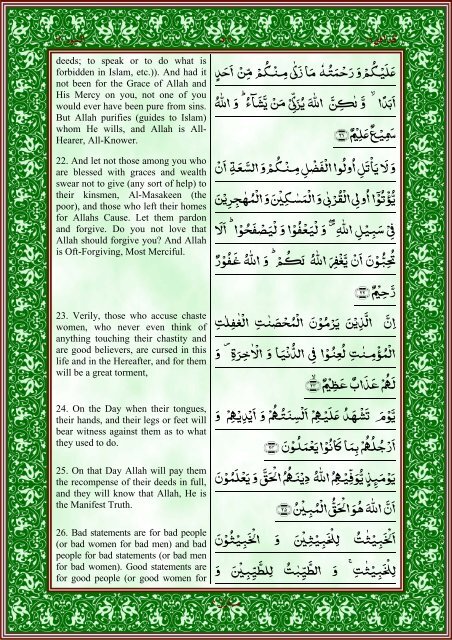 deeds; to speak or to do what is
forbidden in Islam, etc.)). And had it
not been for the Grace of Allah and
His Mercy on you, not one of you
would ever have been pure from sins.
But Allah purifies (guides to Islam)
whom He wills, and Allah is All-
Hearer, All-Knower.
22. And let not those among you who
are blessed with graces and wealth
swear not to give (any sort of help) to
their kinsmen, Al-Masakeen (the
poor), and those who left their homes
for Allahs Cause. Let them pardon
and forgive. Do you not love that
Allah should forgive you? And Allah
is Oft-Forgiving, Most Merciful.
23. Verily, those who accuse chaste
women, who never even think of
anything touching their chastity and
are good believers, are cursed in this
life and in the Hereafter, and for them
will be a great torment,
24. On the Day when their tongues,
their hands, and their legs or feet will
bear witness against them as to what
they used to do.
25. On that Day Allah will pay them
the recompense of their deeds in full,
and they will know that Allah, He is
the Manifest Truth.
26. Bad statements are for bad people
(or bad women for bad men) and bad
people for bad statements (or bad men
for bad women). Good statements are
for good people (or good women for
عَلَيْكُمْ وَ رَحْمَتُهٗ مَا زَكٰى مِنْكُمْ مِّنْ اَحَدٍ
اَبَدًا ۙ وَّ لٰكِنَّ اللّٰهَ يُزَكِّيْ مَنْ يَّشَآءُ ؕ وَ اللّٰهُ
سَمِيْعٌ عَلِيْمٌ ﴿۲۱﴾
وَ لَا يَاْتَلِ اُولُوا الْفَضْلِ مِنْكُمْ وَ السَّعَةِ اَنْ
يُّؤْتُوْۤا اُولِي الْقُرْبٰى وَ الْمَسٰكِيْنَ وَ الْمُهٰجِرِيْنَ
فِيْ سَبِيْلِ اللّٰهِ ۪ۖ وَ لْيَعْفُوْا وَ لْيَصْفَحُوْا ؕ اَلَا
تُحِبُّوْنَ اَنْ يَّغْفِرَ اللّٰهُ لَكُمْ ؕ وَ اللّٰهُ غَفُوْرٌ
رَّحِيْمٌ ﴿۲۲﴾
اِنَّ الَّذِيْنَ يَرْمُوْنَ الْمُحْصَنٰتِ الْغٰفِلٰتِ
الْمُؤْمِنٰتِ لُعِنُوْا فِي الدُّنْيَا وَ الْاٰخِرَةِ ۪ وَ
لَهُمْ عَذَابٌ عَظِيْمٌ ﴿۲۳﴾
يَّوْمَ تَشْهَدُ عَلَيْهِمْ اَلْسِنَتُهُمْ وَ اَيْدِيْهِمْ وَ
اَرْجُلُهُمْ بِمَا كَانُوْا يَعْمَلُوْنَ ﴿۲۴﴾
يَوْمَىِٕذٍ يُّوَفِّيْهِمُ اللّٰهُ دِيْنَهُمُ الْحَقَّ وَ يَعْلَمُوْنَ
اَنَّ اللّٰهَ هُوَ الْحَقُّ الْمُبِيْنُ ﴿۲۵﴾
اَلْخَبِيْثٰتُ لِلْخَبِيْثِيْنَ وَ الْخَبِيْثُوْنَ
لِلْخَبِيْثٰتِ ۚ وَ الطَّيِّبٰتُ لِلطَّيِّبِيْنَ وَ